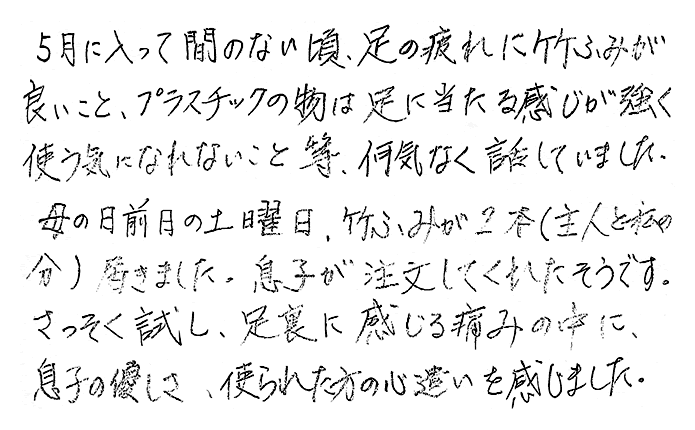 ５月に入って間のない頃、足の疲れに竹ふみが
良いこと、プラスチックの物は足に当たる感じが強く
使う気になれないこと等、何気なく話していました。
母の日前日の土曜日、竹ふみが２本（主人と私の
分）届きました。息子が注文してくれたそうです。
さっそく試し、足裏に感じる痛みの中に、
息子の優しさ、使られた方の心遣いを感じました。